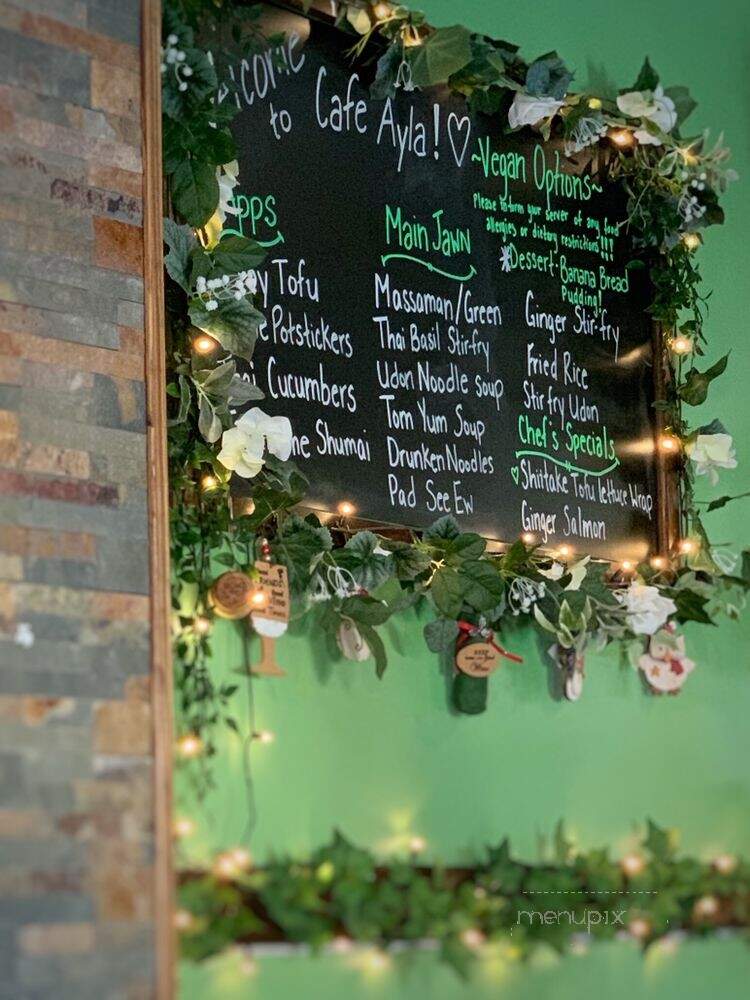 Welcome
to Cafe Ayla! ♡
~Vegan Options~
Please inform your server of any food
allergies or dietary restrictions!!!
*Dessert-Banana Bread
Pudding!
pps
y Tofu
e Potstickers
i Cucumbers
ne Shumai
Main Jawn
Massaman/Green
Thai Basil Stir-fry
Udon Noodle soup
Tom Yum Soup
Drunken Noodles
Pad See Ew
Ginger Stir-fry
Fried Rice
Stir fry Udon
Chef's Specials
♡Shiitake Tofu lettuce Wrap
Ginger Salmon
menupix